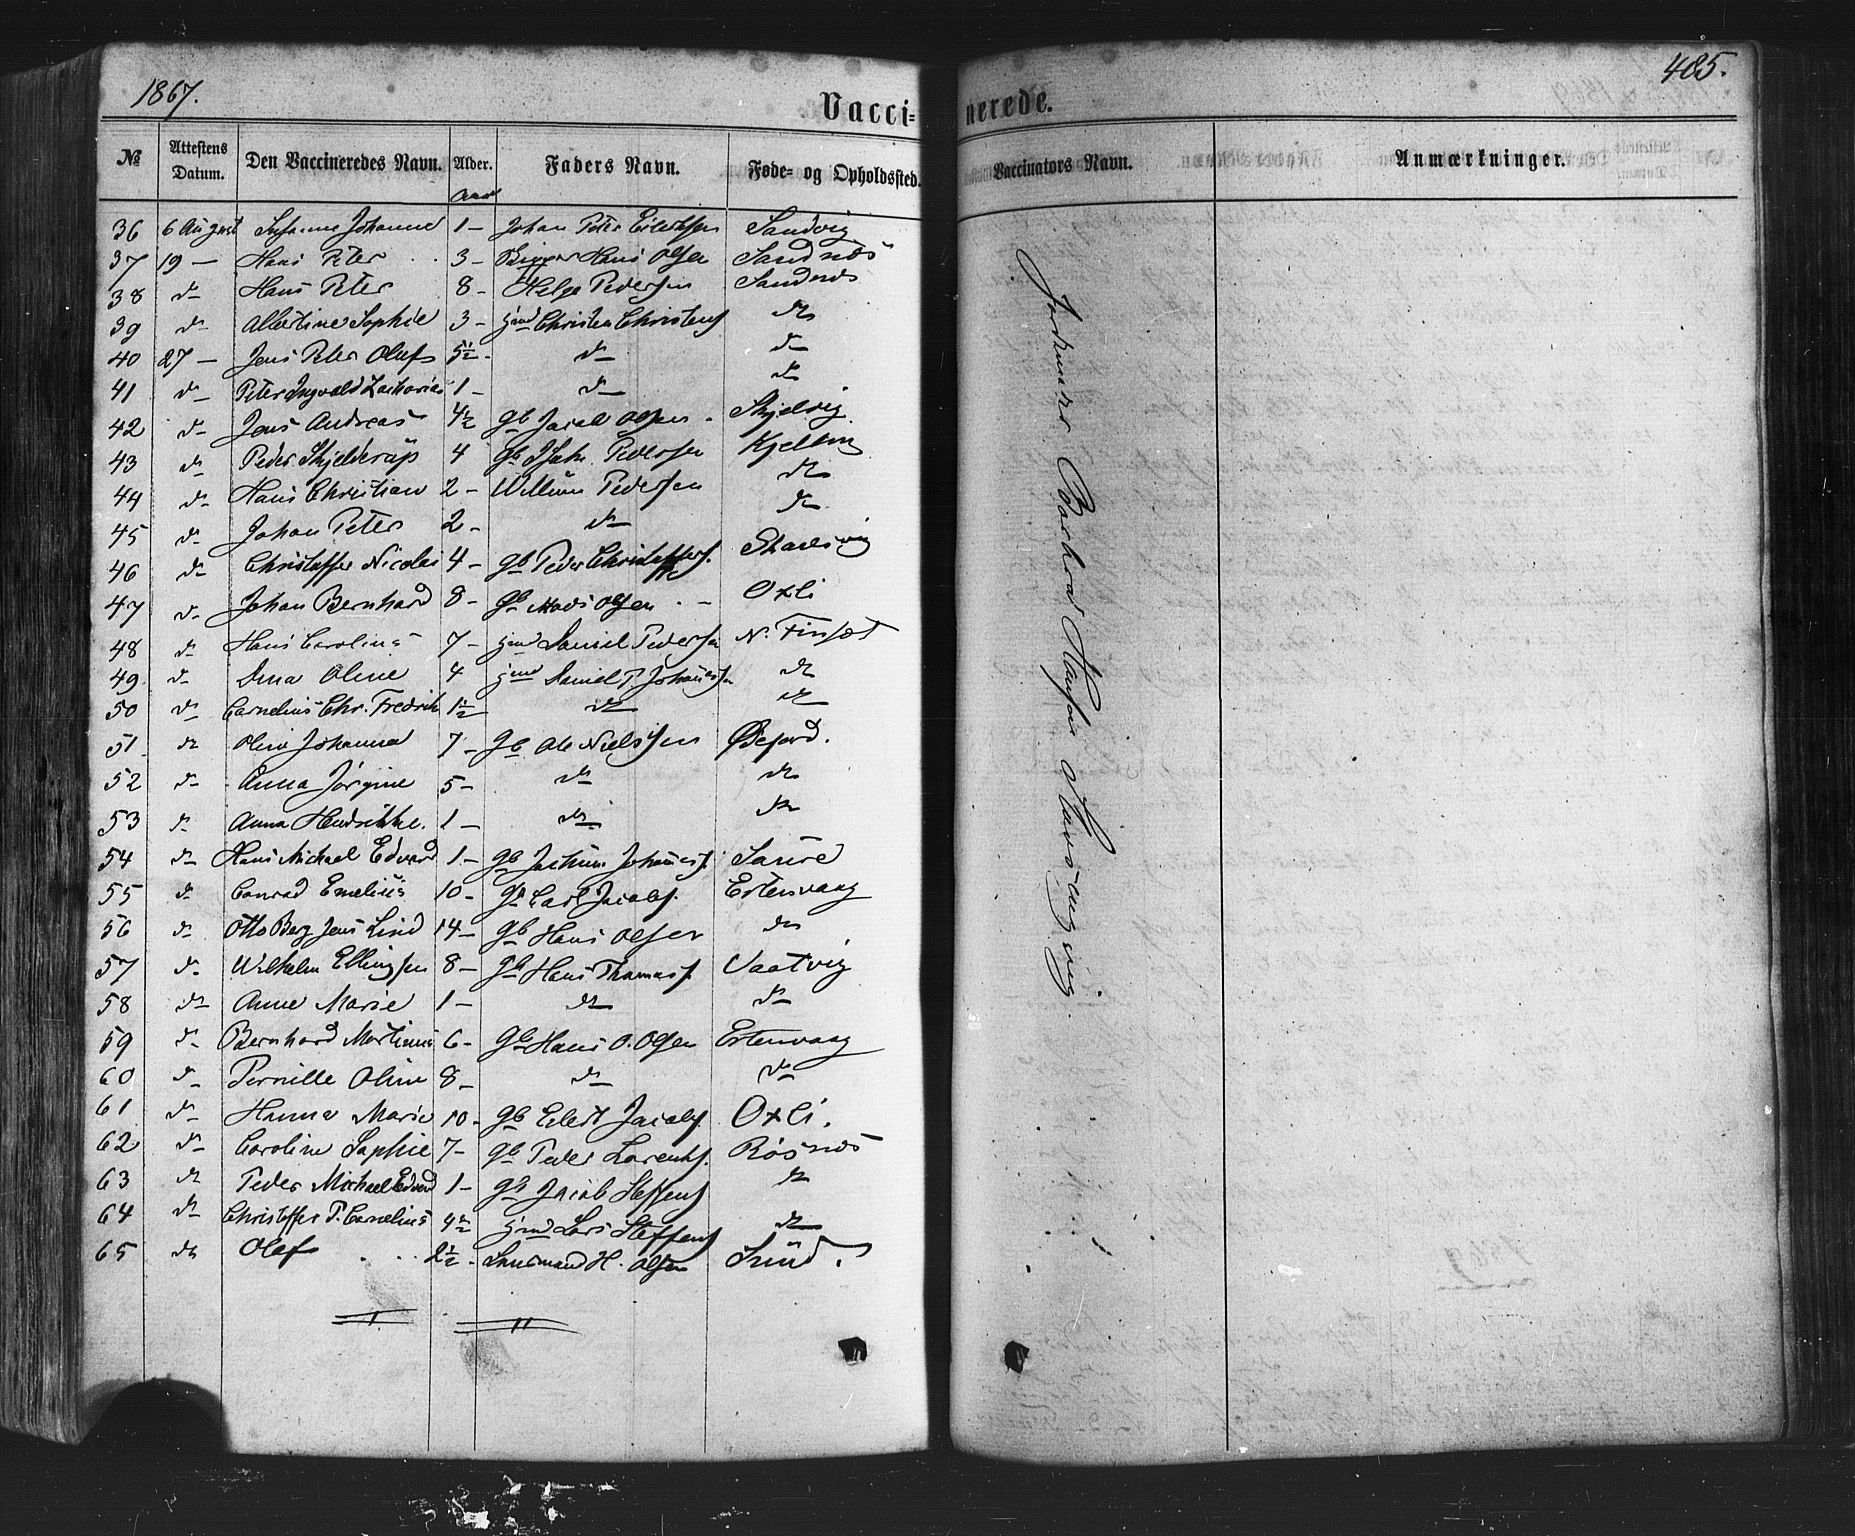 1867.
485.
Vaccinerede.
№ Attestens Datum. Den Vaccineredes Navn. Alder. Faders Navn. Føde- og Opholdssted. Vaccinators Navn. Anmærkninger.
Aar
36 6 August Susanne Johanne 1 - Johan Peter Eilertsen Sandvig
37 19 - Hans Peter 3 - Hans Olsen Sandnæs
38 do Hans Peter 8 - Helge Pedersen Sandnæs
39 do Albertine Sophie 3 - Christen Christens do
40 27 - Jens Peter Oluf 5½ - do do
41 do Peter Ingvald Zacharias 1 - do do
42 do Jens Andreas 4½ gb Jacob Olsen - Skjelvig
43 do Peder Skjelderup 4 gb Pedersen Kjelling
44 do Hans Christian 2 - Willum Pedersen do
45 do Johan Peter 2 - do do
46 do Christoffer Nicolai 4 - gb Peder Christoffers.
47 do Johan Bernhard 8 - gb Mads Olsen - Oxli
48 do Hans Carolius 7 - Daniel Pedersen N. Finset
49 do Dina Oline 4 Daniel P. Johannessen do
50 do Cornelius Chr. Fredrik 1½ do do
51 do Olina Johanna 7 - gb Ole Nielssen Øefjord.
52 do Anna Jørgine 5 - do do
53 do Anna Hendrikke. 1 - do do
54 do Hans Michael Edvard 1 - gb Jochum Johannes. Saure
55 do Conrad Emelius 10 - gb Carl Jacobs. Ertenvaag
56 do Otto Berg Jens Lind 14 - gb Hans Olsen do
57 do Wilhelm Ellingsen 8 - gb Hans Thomas. Vaatvig
58 do Anne Marie 1 - do do
59 do Bernhard Martinus 6 - gb Hans O. Olsen Ertenvaag
60 do Pernille Oline 8 - do do
61 do Hanna Marie 10 - gb Eilert Jacobs. Oxli.
62 do Caroline Sophie 7 - gb Peder Lorents. Røsnæs
63 do Peder Michael Edvard 1 - gb Jacob Steffens do
64 do Christoffer P. Cornelius 4½ Lars Steffens do
65 do Olaf 2½ - Lensmand H. Olsen Sund.
Jordmoder